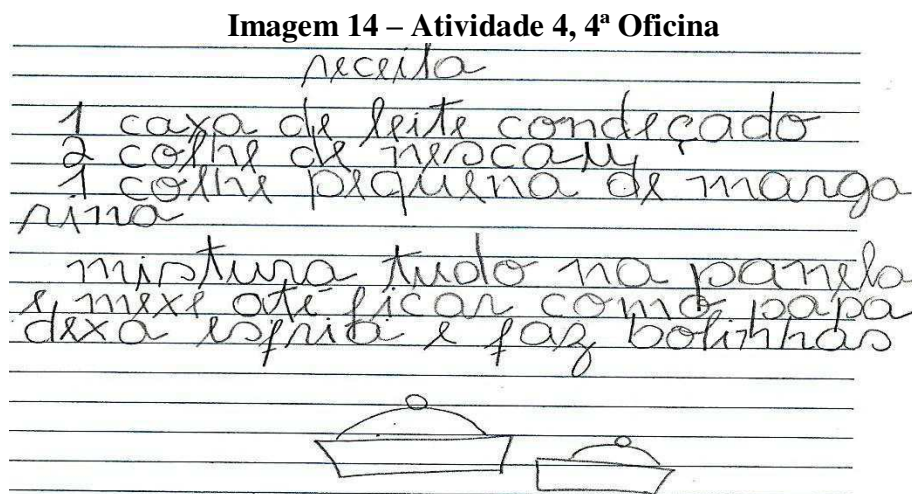 Imagem 14 – Atividade 4, 4ª Oficina
receita
1 caxa de leite condeçado
2 colhe de nescau
1 colhe pequena de marga
rina
mistura tudo na panela
e mexe até ficar como papa
dexa esfria e faz bolinhas